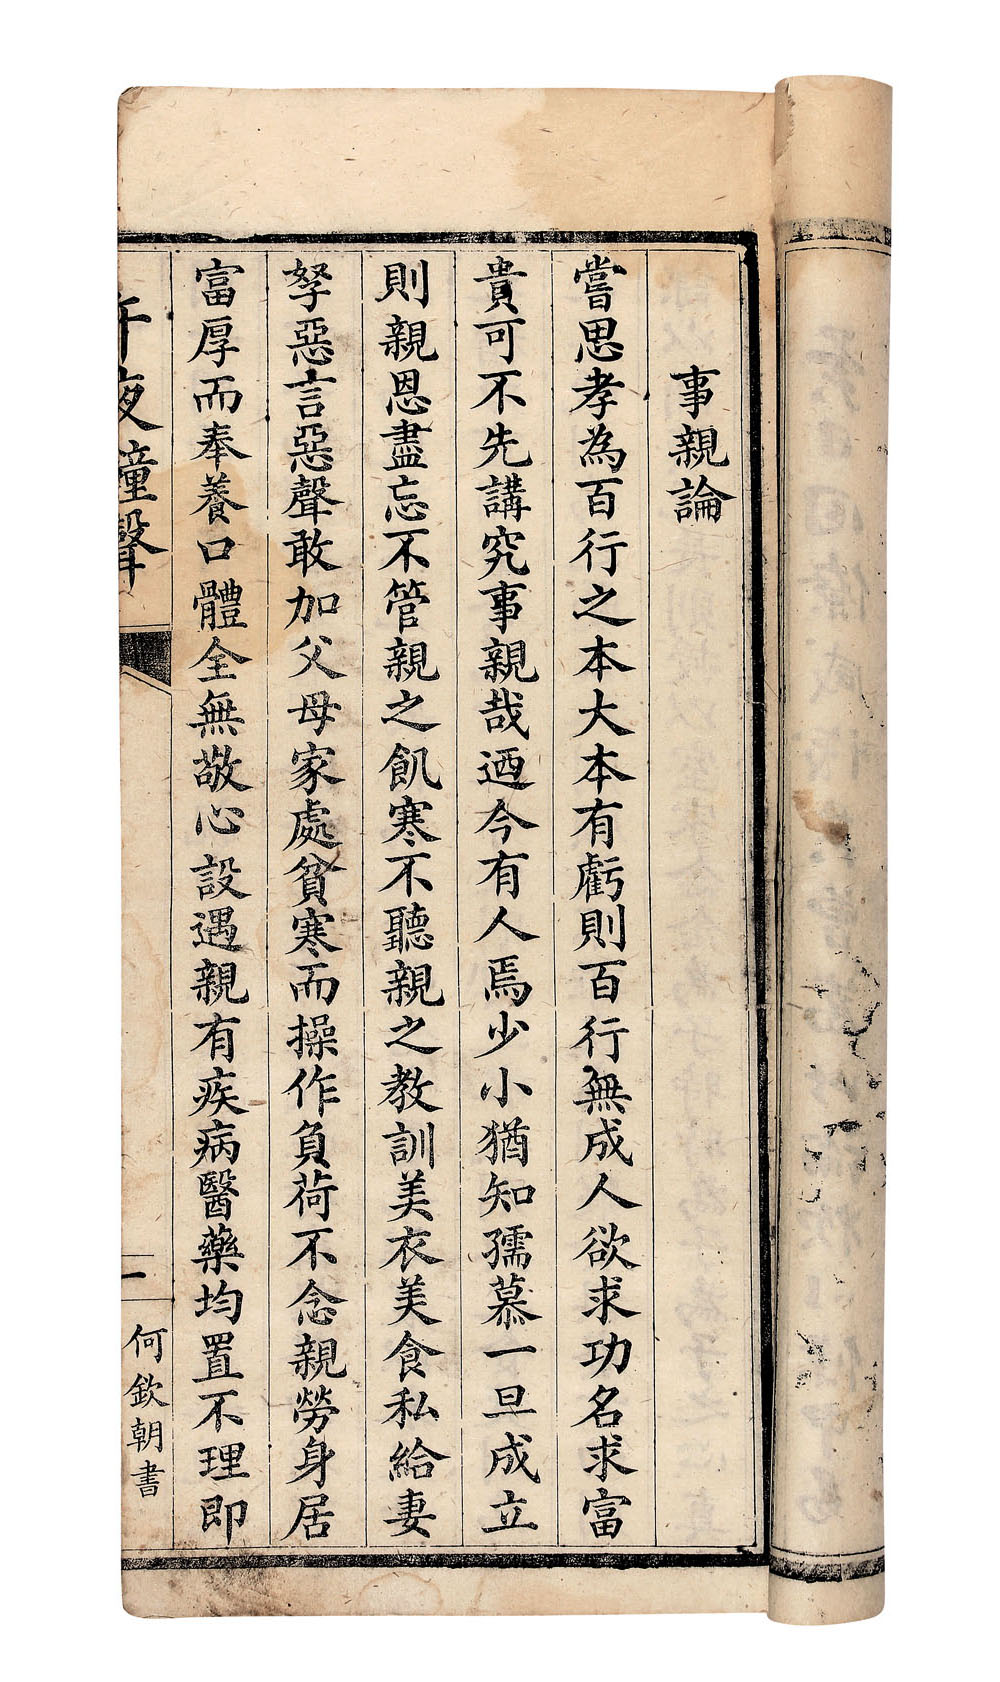 事親論
嘗思孝為百行之本大本有虧則百行無成人欲求功名求富
貴可不先講究事親哉迺今有人焉少小猶知孺慕一旦成立
則親恩盡忘不管親之飢寒不聽親之教訓美衣美食私給妻
孥惡言惡聲敢加父母家處貧寒而操作負荷不念親勞身居
富厚而奉養口體全無敬心設遇親有疾病醫藥均置不理即
午夜鐘聲
一
何欽朝書